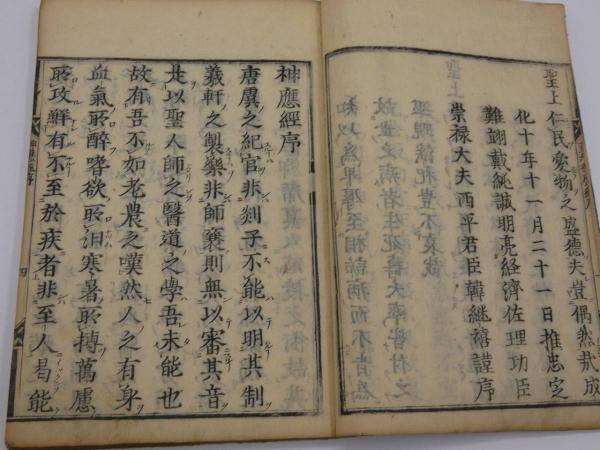 聖上仁民愛物之盛德夫豈偶然哉成
化十年十一月二十一日推忠定
難翊戴純誠明亮経濟佐理功臣
崇禄大夫西平君臣韓継禧謹序
神應經序
唐虞之紀官非剡子不能以明其制
羲軒之製樂非師襄則無以審其音
是以聖人師之醫道之學吾未能也
故有吾不如老農之嘆然人之有身
血氣所醉嗜欲所汨寒暑所搏萬慮
所攻鮮有不至於疾者非至人曷能